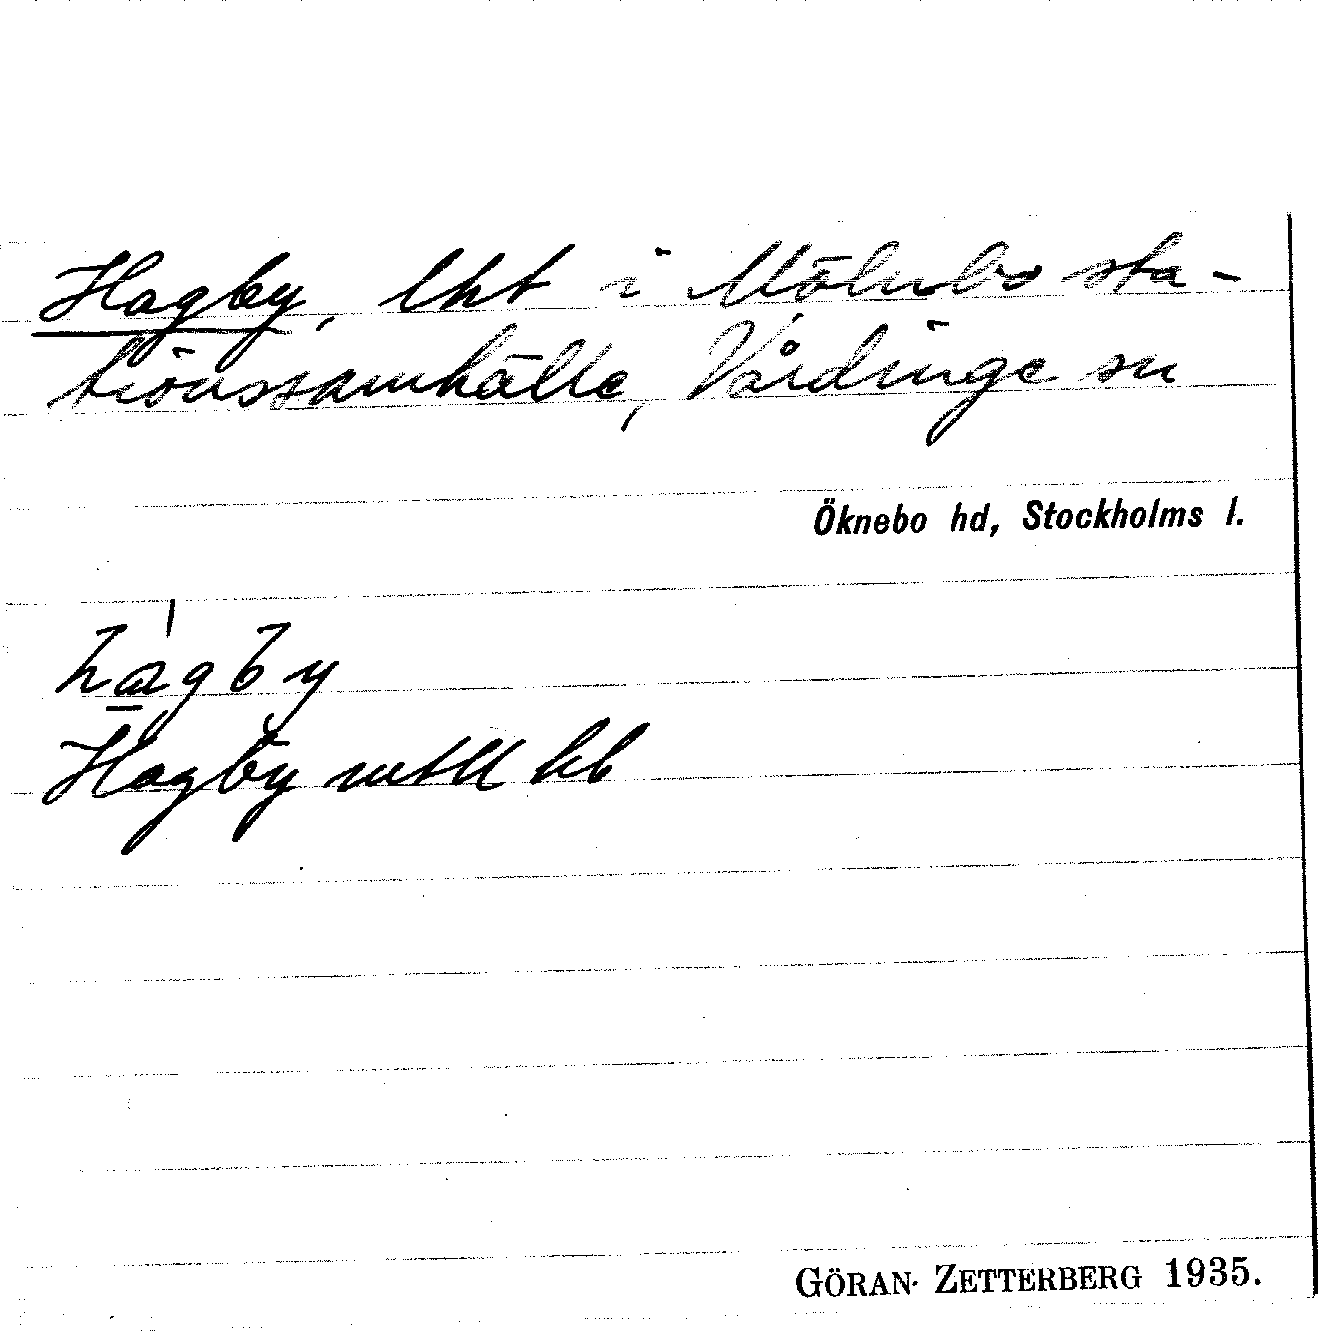 Hagby, lht i Mölnbo sta-
tionssamhälle, Vårdinge sn
Öknebo hd, Stockholms l.
hagby
Hagby mtll kb
GÖRAN ZETTERBERG 1935.